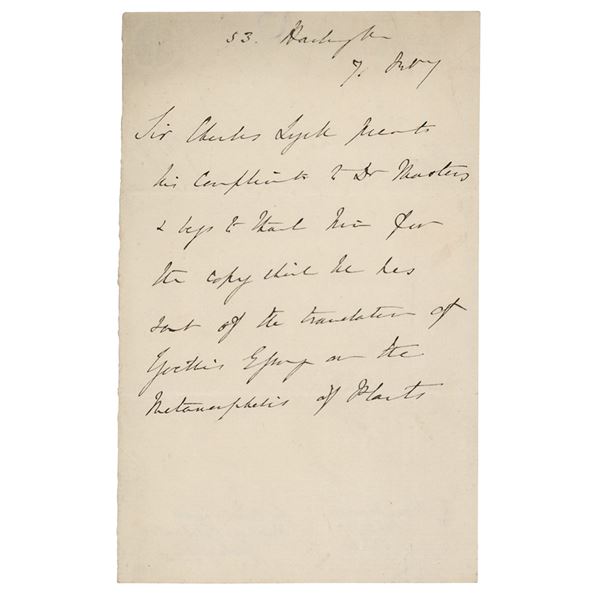 53. Harley St
7. May
Sir Charles Lyell presents
his Compliments to Dr Masters
& begs to thank him for
the copy which he has
sent of the translation of
Goethe's Essay on the
Metamorphosis of Plants